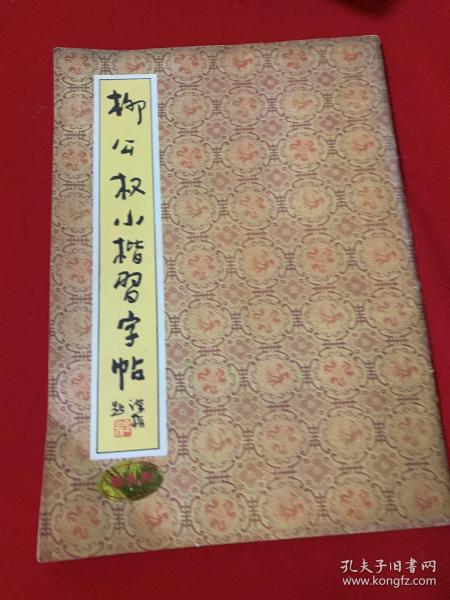 柳公权小楷習字帖
孔夫子旧书网
www.kongfz.com